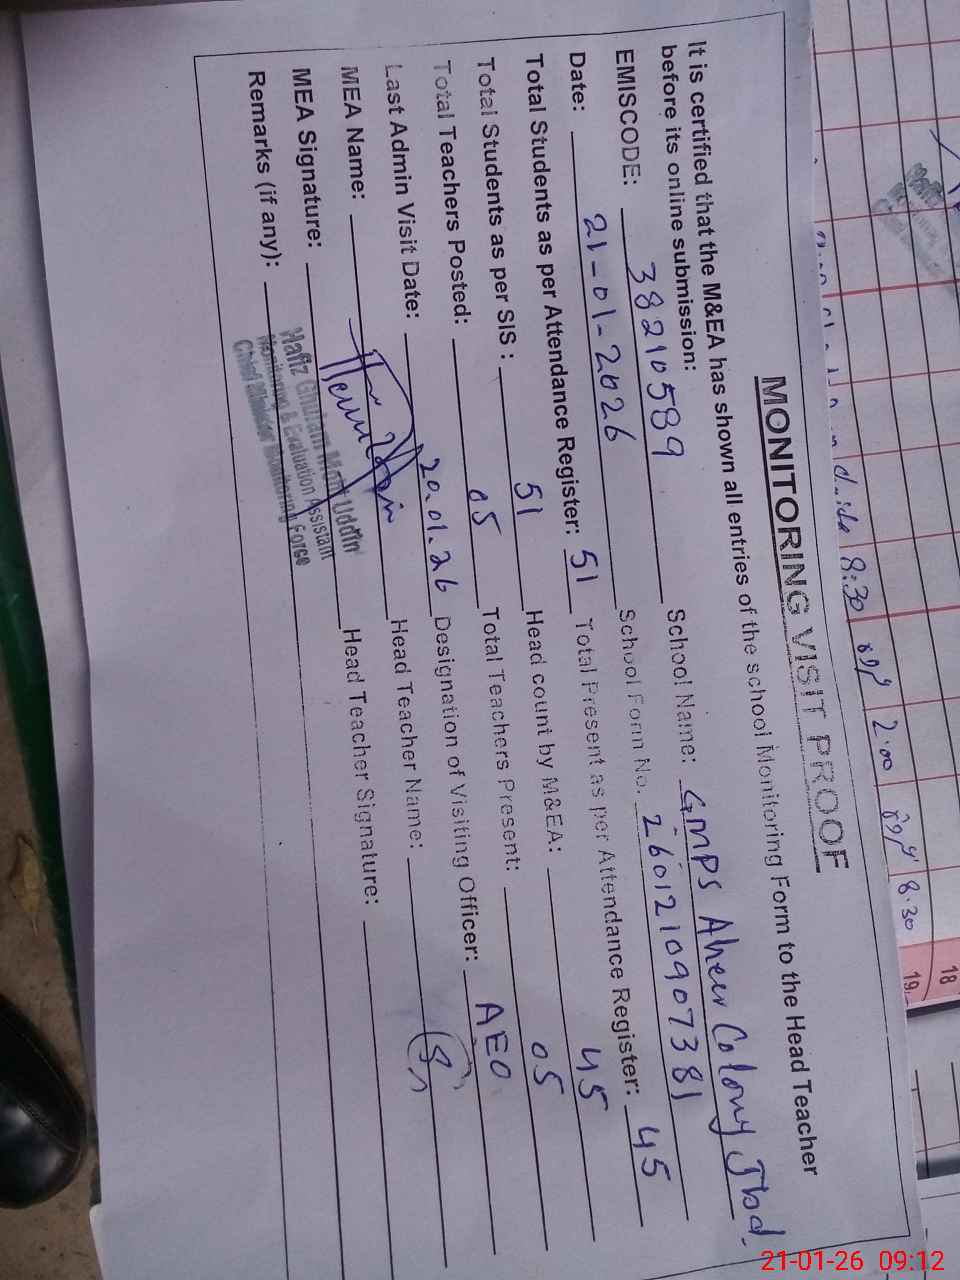 MONITORING VISIT PROOF
It is certified that the M&EA has shown all entries of the school Monitoring Form to the Head Teacher
before its online submission:
EMISCODE: 38210589 School Name: GMPS Aheer Colony Jbd.
Date: 21-01-2026 School Form No. 2601210907381
Total Students as per Attendance Register: 51 Total Present as per Attendance Register: 45
Total Students as per SIS : 51 Head count by M&EA: 45
Total Teachers Posted: 05 Total Teachers Present: 05
Last Admin Visit Date: 20.01.26 Designation of Visiting Officer: AEO
MEA Name: Head Teacher Name:
MEA Signature: Head Teacher Signature:
Remarks (if any):
Hafiz Ghulam Mohi Uddin
Monitoring & Evaluation Assistant
Chief Minister Monitoring Force
8:30
2.00
8.30
18
19
21-01-26 09:12